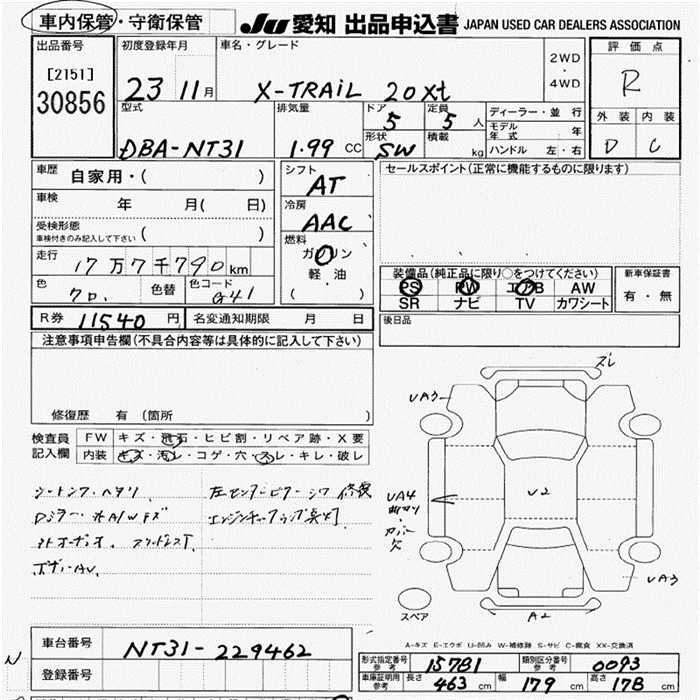 車内保管・守衛保管 JU 愛知 出品申込書 JAPAN USED CAR DEALERS ASSOCIATION
出品番号 初度登録年月 車名・グレード 2WD ・ 4WD 評価点
[2151]
30856 23 11月 X-TRAIL 20Xt R
型式 排気量 ドア 5 定員 5人 ディーラー・並行 外装 内装
モデル年式 年
DBA-NT31 1.99 CC 形状 SW 積載 kg ハンドル 左・右 D C
車歴 自家用・( ) シフト AT セールスポイント(正常に機能するものに限ります)
車検 年 月( 日) 冷房 AAC
受検形態
車検付きのみ記入して下さい ( ) 燃料 ガソリン
走行 17万7千790km 軽油
装備品(純正品に限り○をつけてください) 新車保証書
色 クロ. 色替 色コード G41 ( )
PS PW エアB AW 有・無
SR ナビ TV カワシート
R券 11540円 名変通知期限 月 日 後日品
注意事項申告欄(不具合内容等は具体的に記入して下さい)
修復歴 有(箇所 )
検査員 FW キズ・飛石・ヒビ割・リペア跡・X要
記入欄 内装 キズ・汚レ・コゲ・穴・スレ・キレ・破レ
ズレ
UA3
UA4
U2
カバー
欠
UA3
A2
スペア
シートシワ・ヘタリ 左センターピラーシワ 修復
エンジンチェックランプ点灯
社外オーディオ.
ボデーAU.
A-キズ E-エクボ U-凹み W-補修跡 S-サビ C-腐食 XX-交換済
車台番号 NT31-229462
N
登録番号
形式指定番号 参考 15781 類別区分番号 参考 0093
車庫証明用 参考 長さ 463 cm 幅 179 cm 高さ 178 cm